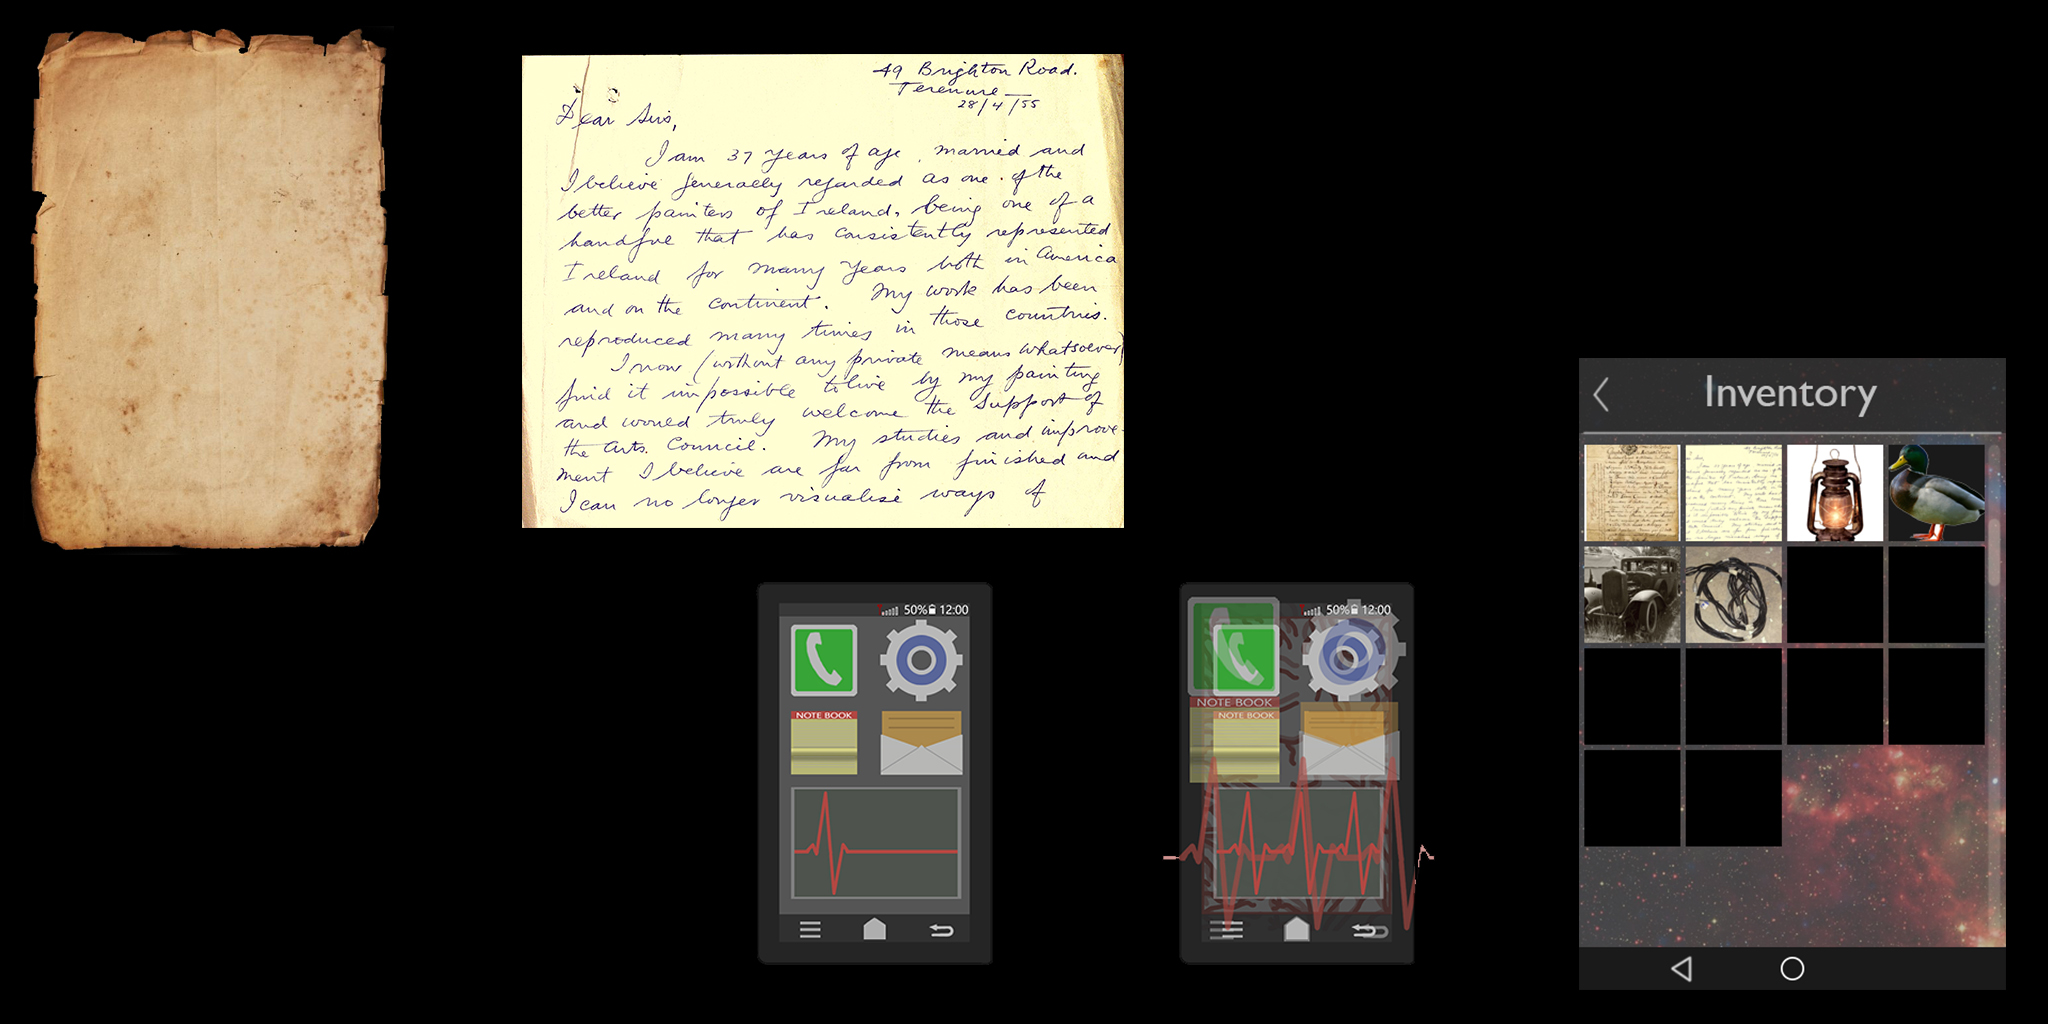 49 Brighton Road.
Terenure
28/4/55
Dear Sirs,
I am 37 years of age, married and
I believe generally regarded as one of the
better painters of Ireland, being one of a
handful that has consistently represented
Ireland for many years both in America
and on the continent. My work has been
reproduced many times in those countries.
I now (without any private means whatsoever)
find it impossible to live by my painting
and would truly welcome the support of
the Arts Council. My studies and improve-
ment I believe are far from finished and
I can no longer visualise ways of
50% 12:00
NOTE BOOK
50% 12:00
NOTE BOOK
NOTE BOOK
Inventory